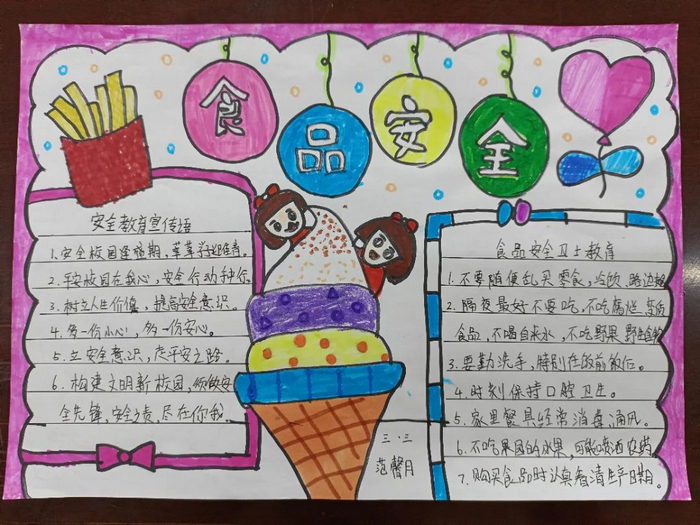 食品安全
安全教育宣传语
1.安全校园连
2.平安校园在我心,安全行动
3.树立人生价值,提高安全意识。
4.多一份小心,多一份安心。
5.立安全意识,走平安之路。
6.构建文明新校园,
全先锋,安全之责,尽在你我
三·三
范馨月
食品安全卫士教育
1.不要随便乱买零食,冷饮,路边
2.隔夜最好不要吃,不吃腐烂、变质
食品,不喝自来水,不吃野果
3.要勤洗手,特别在
4.时刻保持口腔卫生。
5.家里餐具经常消毒通风。
6.不吃果园的水果,可能喷洒农药
7.购买食品时认真看清生产日期。